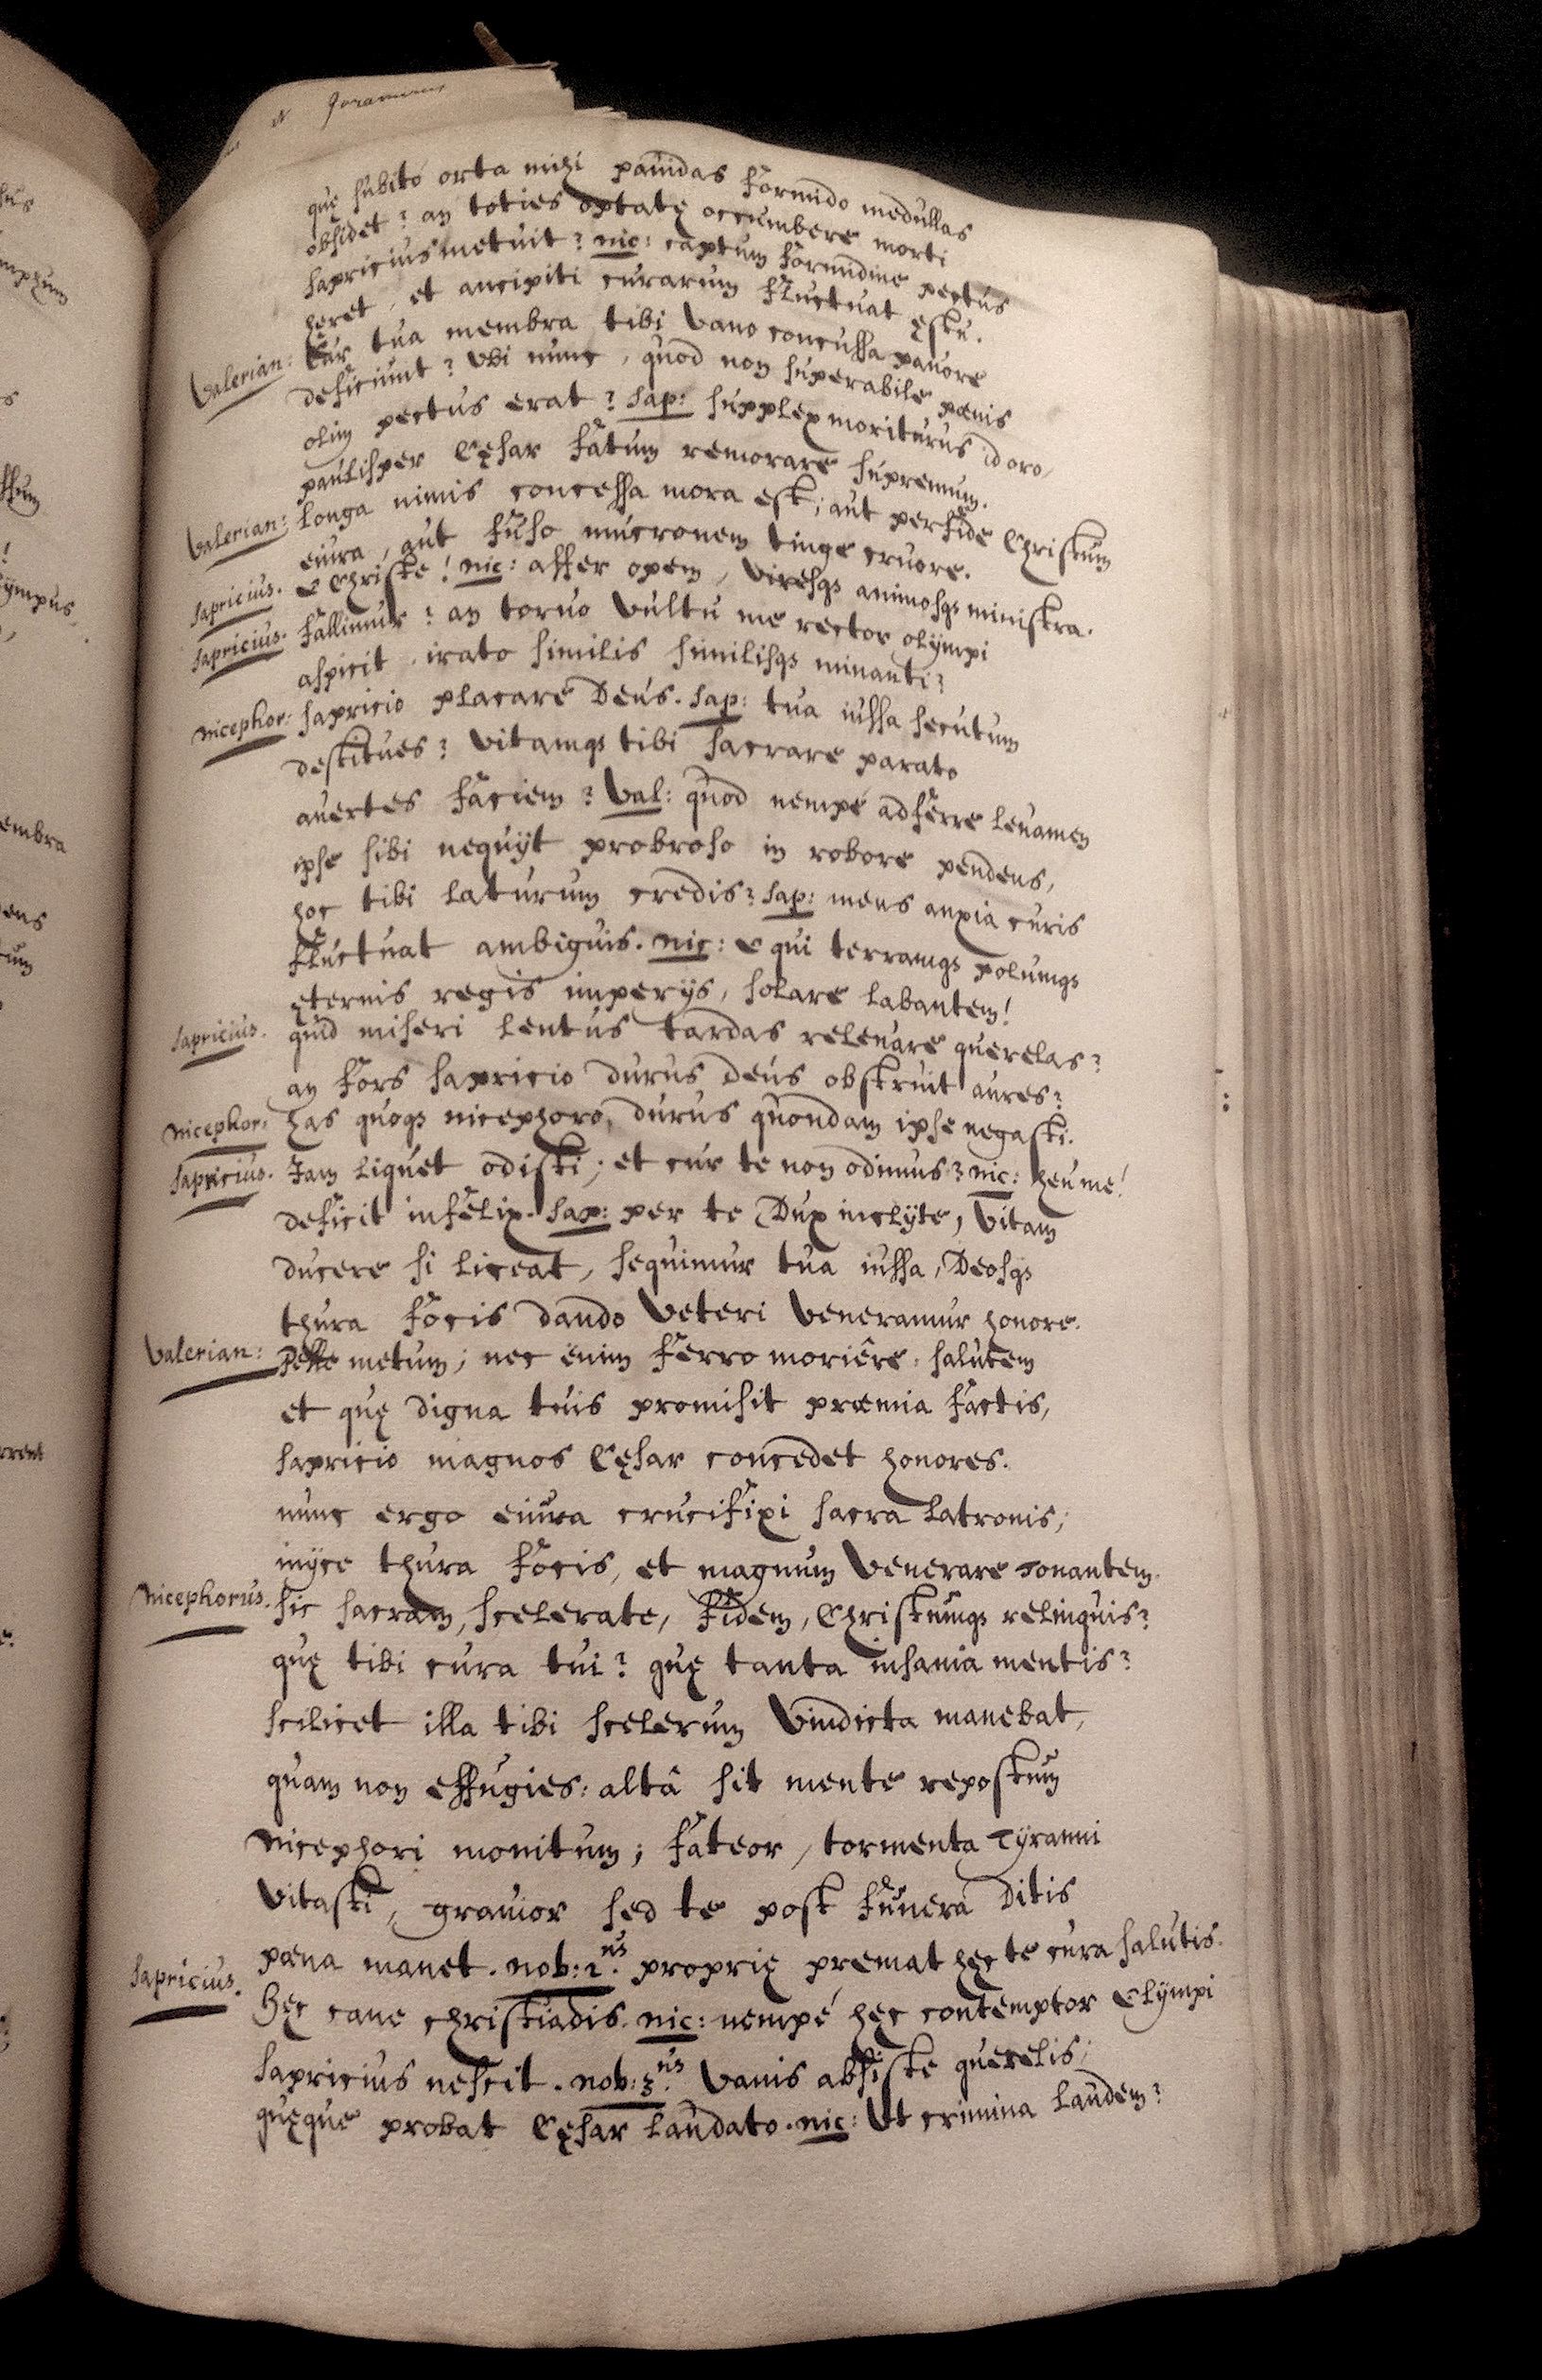 quę subitò orta mihi pauidas formido medullas
obsidet? an toties optatę occumbere morti
sapricius metuit? nic: captum formidine pectus
hęret, et ancipiti curarum fluctuat ęstu.
Valerian: Cur tua membra tibi vano concussa pauore
deficiunt? Vbi nunc, quod non superabile pœnis
olim pectus erat? sap: supplex moriturus id oro,
paulisper Cęsar fatum remorare supremum.
Valerian: longa nimis concessa mora est; aut perfide Christum
eiura, aut fuso mucronem tinge cruore.
sapricius. O Christe! nic: affer opem, viresqꝫ animosqꝫ ministra.
sapricius. fallimur? an toruo vultu me rector olympi
aspicit, irato similis similisqꝫ minanti?
nicephor: sapricio placare Deus. sap: tua iussa secutum
destitues? vitamqꝫ tibi sacrare parato
auertes faciem? Val: quod nempé adferre leuamen
ipse sibi nequijt probroso in robore pendens,
hoc tibi laturum credis? sap: mens anxia curis
fluctuat ambiguis. nic: O qui terramqꝫ polumqꝫ
ęternis regis imperijs, solare labantem!
sapricius. quid miseri lentus tardas releuare querelas?
an fors sapricio durus deus obstruit aures?
nicephor: has quoqꝫ nicephoro, durus quondam ipse negasti.
sapricius. Jam liquet odisti; et cur te non odimus? nic: heu me!
deficit infelix. sap: per te Dux inclÿte, vitam
ducere si liceat, sequimur tua iussa, Deosqꝫ
thura focis dando veteri veneramur honore.
Valerian: Pelle metum; nec enim ferro moriêre, salutem
et quę digna tuis promisit præmia factis,
sapricio magnos Cęsar concedet honores.
nunc ergo eiura crucifixi sacra latronis;
inijce thura focis, et magnum venerare tonantem.
Nicephorus. sic sacram, scelerate, fidem, Christumqꝫ relinquis?
quę tibi cura tui? quę tanta insania mentis?
scilicet illa tibi scelerum vindicta manebat,
quam non effugies: altâ sit mente repostum
nicephori monitum; fateor, tormenta Tÿranni
vitasti, grauior sed te post funera Ditis
pœna manet. nob: 2.us proprię premat hęc te cura salutis.
sapricius. Hęc cane christiadis. nic: nempé hęc contemptor Olÿmpi
sapricius nescit. nob: 3.us Vanis absiste querelis;
quęque probat Cęsar laudato. nic: Vt crimina laudem?